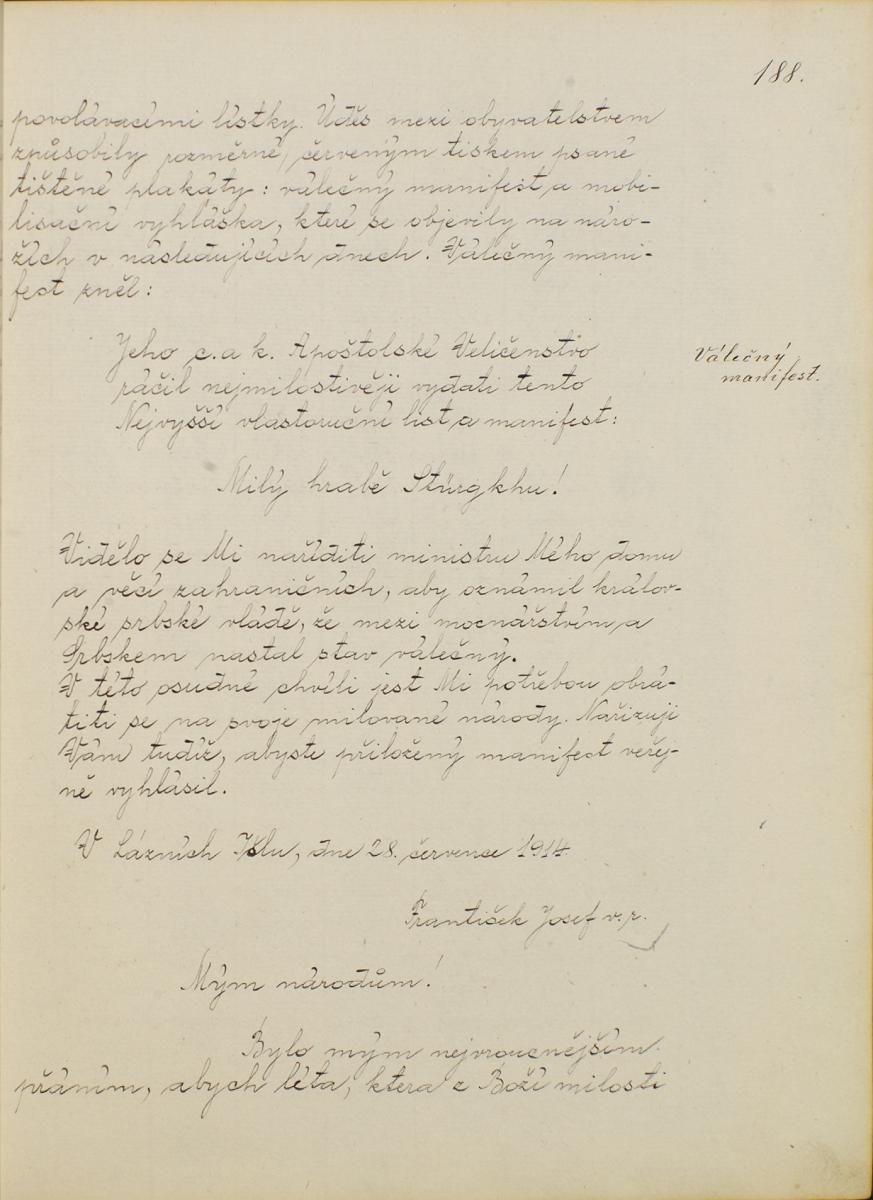 188.
povolávacími lístky. Úděs mezi obyvatelstvem
způsobily rozměrné, červeným tiskem psané
tištěné plakáty: válečný manifest a mobi-
lisační vyhláška, které se objevily na náro-
žích v následujících dnech. Válečný mani-
fest zněl:
Jeho c. a k. Apoštolské Veličenstvo
ráčil nejmilostivěji vydati tento
Nejvyšší vlastoruční list a manifest:
Válečný
manifest.
Milý hrabě Stürgkhu!
Vidělo se Mi naříditi ministru Mého domu
a věcí zahraničních, aby oznámil králov-
ské srbské vládě, že mezi mocnářstvím a
Srbskem nastal stav válečný.
V této osudné chvíli jest Mi potřebou obrá-
titi se na svoje milované národy. Nařizuji
Vám tudíž, abyste přiložený manifest veřej-
ně vyhlásil.
V Lázních Išlu, dne 28. července 1914.
František Josef v. r.
Mým národům!
Bylo mým nejvroucnějším
přáním, abych léta, ktera z Boží milosti